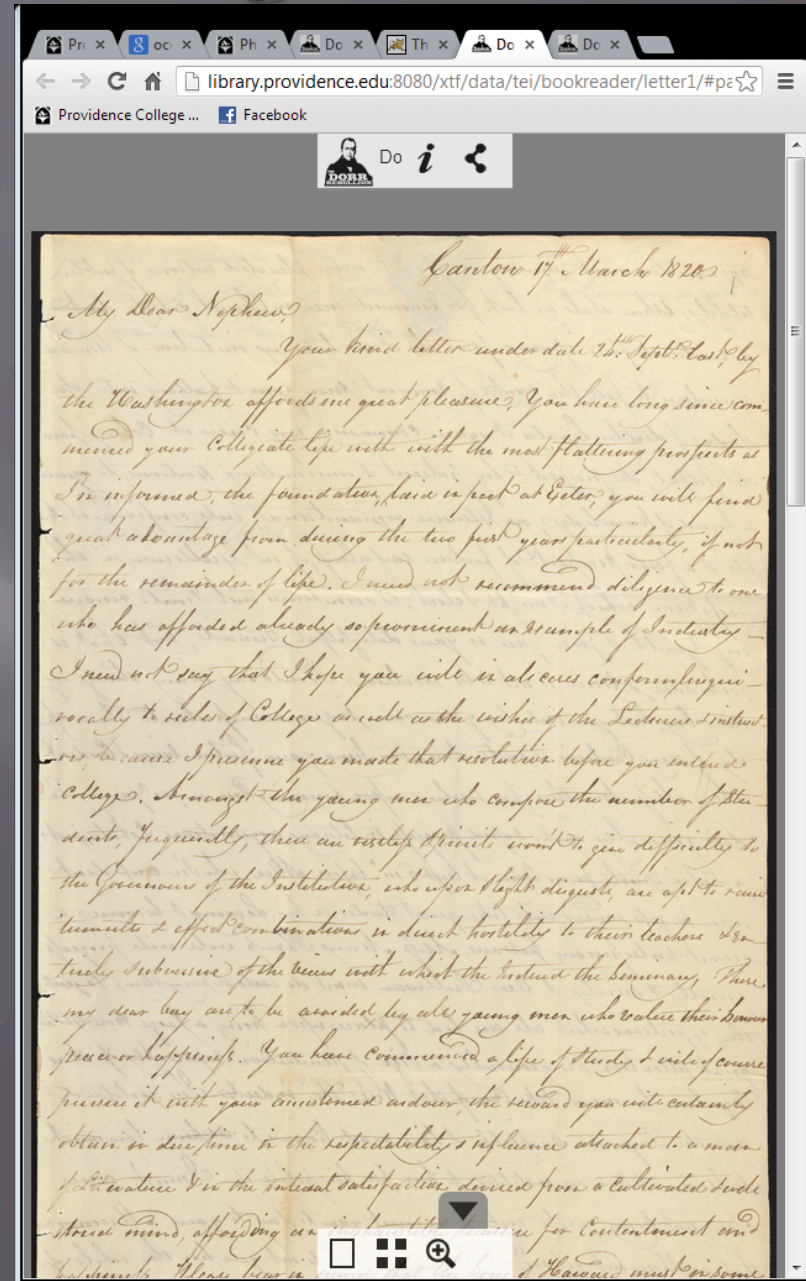 Pr
oc
Ph
Do
Th
Do
Do
library.providence.edu:8080/xtf/data/tei/bookreader/letter1/#pa
Providence College ...
Facebook
DORR
REBELLION
Do
Canton 17th March 1820
My Dear Nephew,
Your kind letter under date 24th Sept. last, by
the Washington affords me great pleasure, You have long since com-
menced your Collegiate life with with the most flattering prospects as
I'm informed, the foundation, laid in part at Exeter, you will find
great advantage from during the two first years particularly, if not
for the remainder of life. I need not recommend diligence to one
who has afforded already so prominent an example of Industry -
I need not say that I hope you will in all cases conform unequi-
vocally to rules of College as well as the wishes of the Lecturers & instruct
ors, because I presume you made that resolution before you entered
College. Amongst the young men who compose the number of Stu-
dents, frequently, there are restless Spirits wont to give difficulty to
the Governours of the Institution, who upon slight disgusts, are apt to raise
tumults & effect combinations in direct hostility to their teachers & en-
tirely subversive of the views with which the Entered the Seminary, These
my dear boy are to be avoided by all young men who value their honour
peace or happiness. You have commenced a life of Study & will of course
pursue it with your accustomed ardour, the reward you will certainly
obtain in due time in the respectability & influence attached to a man
of Literature & in the internal satisfaction derived from a Cultivated & well
stored mind, affording an for Contentment and
Please bear in of Harvard must in some